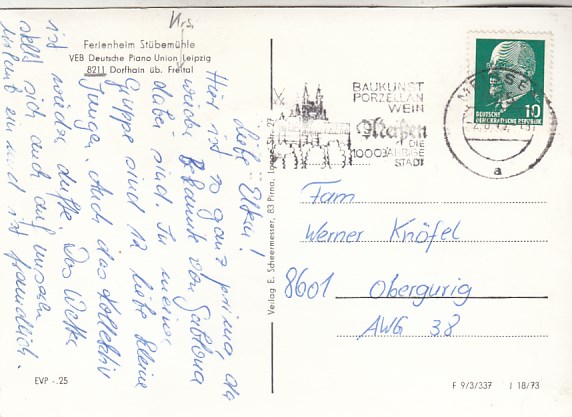 Krs.
Ferienheim Stübemühle
VEB Deutsche Piano Union Leipzig
8211 Dorfhain üb. Freital
Liebe Eltern!
Hier ist es ganz prima, da
wieder Bekannte von
dabei sind. In meiner
Gruppe sind 12 liebe kleine
Jungs. Auch das Kollektiv
ist wieder dufte. Das Wetter
stellt sich auch auf unseren
Urlaub ein und ist freundlich.
EVP -.25
Verlag E. Scheermesser, 83 Pirna,
BAUKUNST
PORZELLAN
WEIN
Meißen
DIE
1000JÄHRIGE
STADT
MEISSEN
a
10
DEUTSCHE
DEMOKRATISCHE REPUBLIK
Fam
Werner Knöfel
8601 Obergurig
AWG 38
F 9/3/337 J 18/73